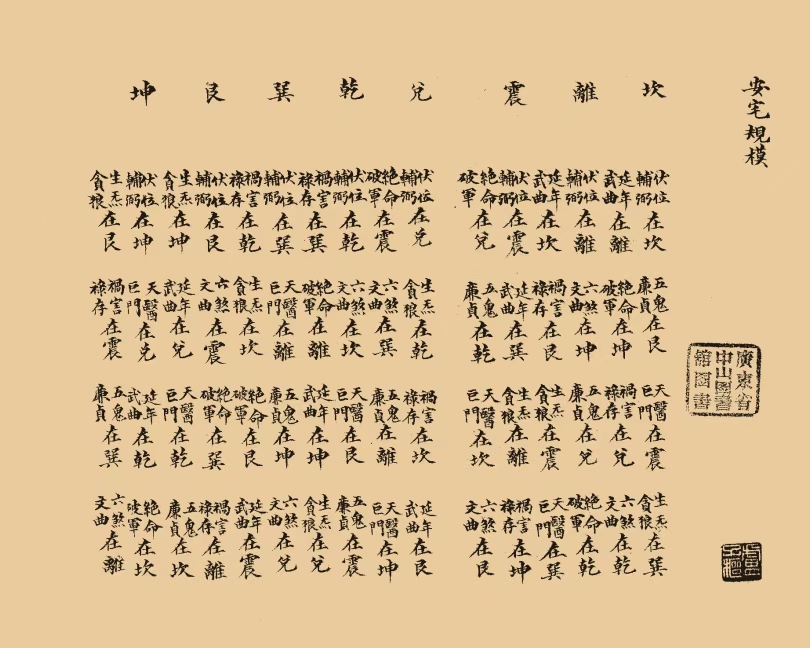 安宅規模
坎 離 震 兌 乾 巽 艮 坤
伏位輔弼在坎 五鬼廉貞在艮 天醫巨門在震 生炁貪狼在巽
延年武曲在離 絕命破軍在坤 禍害祿存在兌 六煞文曲在乾
伏位輔弼在離 六煞文曲在坤 五鬼廉貞在兌 絕命破軍在乾
延年武曲在坎 禍害祿存在艮 生炁貪狼在震 天醫巨門在巽
伏位輔弼在震 延年武曲在巽 生炁貪狼在離 禍害祿存在坤
絕命破軍在兌 五鬼廉貞在乾 天醫巨門在坎 六煞文曲在艮
伏位輔弼在兌 生炁貪狼在乾 禍害祿存在坎 延年武曲在艮
絕命破軍在震 六煞文曲在巽 五鬼廉貞在離 天醫巨門在坤
伏位輔弼在乾 六煞文曲在坎 天醫巨門在艮 五鬼廉貞在震
禍害祿存在巽 絕命破軍在離 延年武曲在坤 生炁貪狼在兌
伏位輔弼在巽 天醫巨門在離 五鬼廉貞在坤 六煞文曲在兌
禍害祿存在乾 生炁貪狼在坎 絕命破軍在艮 延年武曲在震
伏位輔弼在艮 六煞文曲在震 絕命破軍在巽 禍害祿存在離
生炁貪狼在坤 延年武曲在兌 天醫巨門在乾 五鬼廉貞在坎
伏位輔弼在坤 天醫巨門在兌 延年武曲在乾 絕命破軍在坎
生炁貪狼在艮 禍害祿存在震 五鬼廉貞在巽 六煞文曲在離
廣東省
中山圖書
館圖書